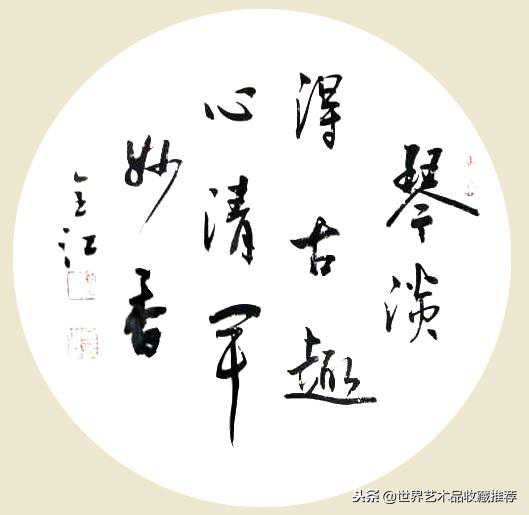 琴淡
得古趣
心清闻
妙香
江
头条 @世界艺术品收藏推荐